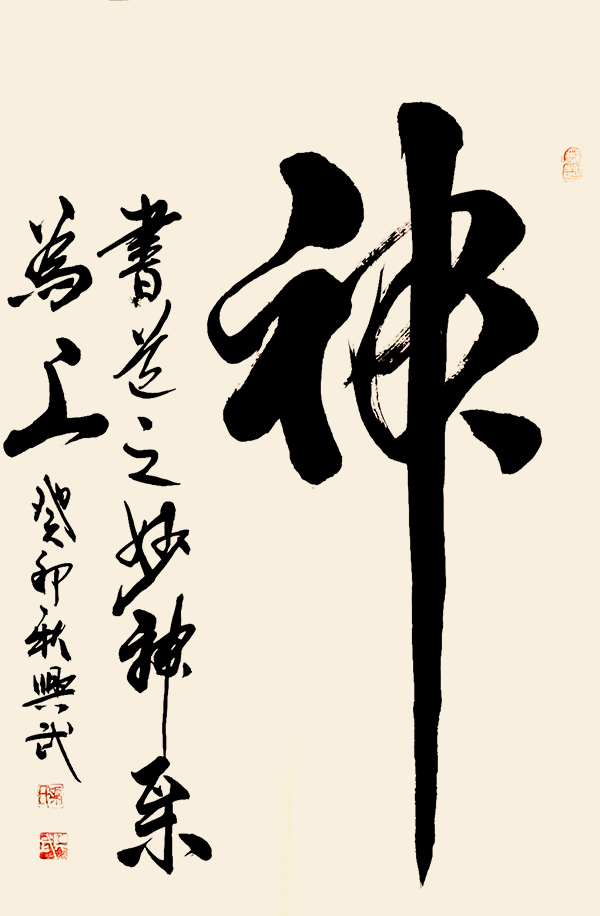 神
書道之妙神采
為上
癸卯秋興武